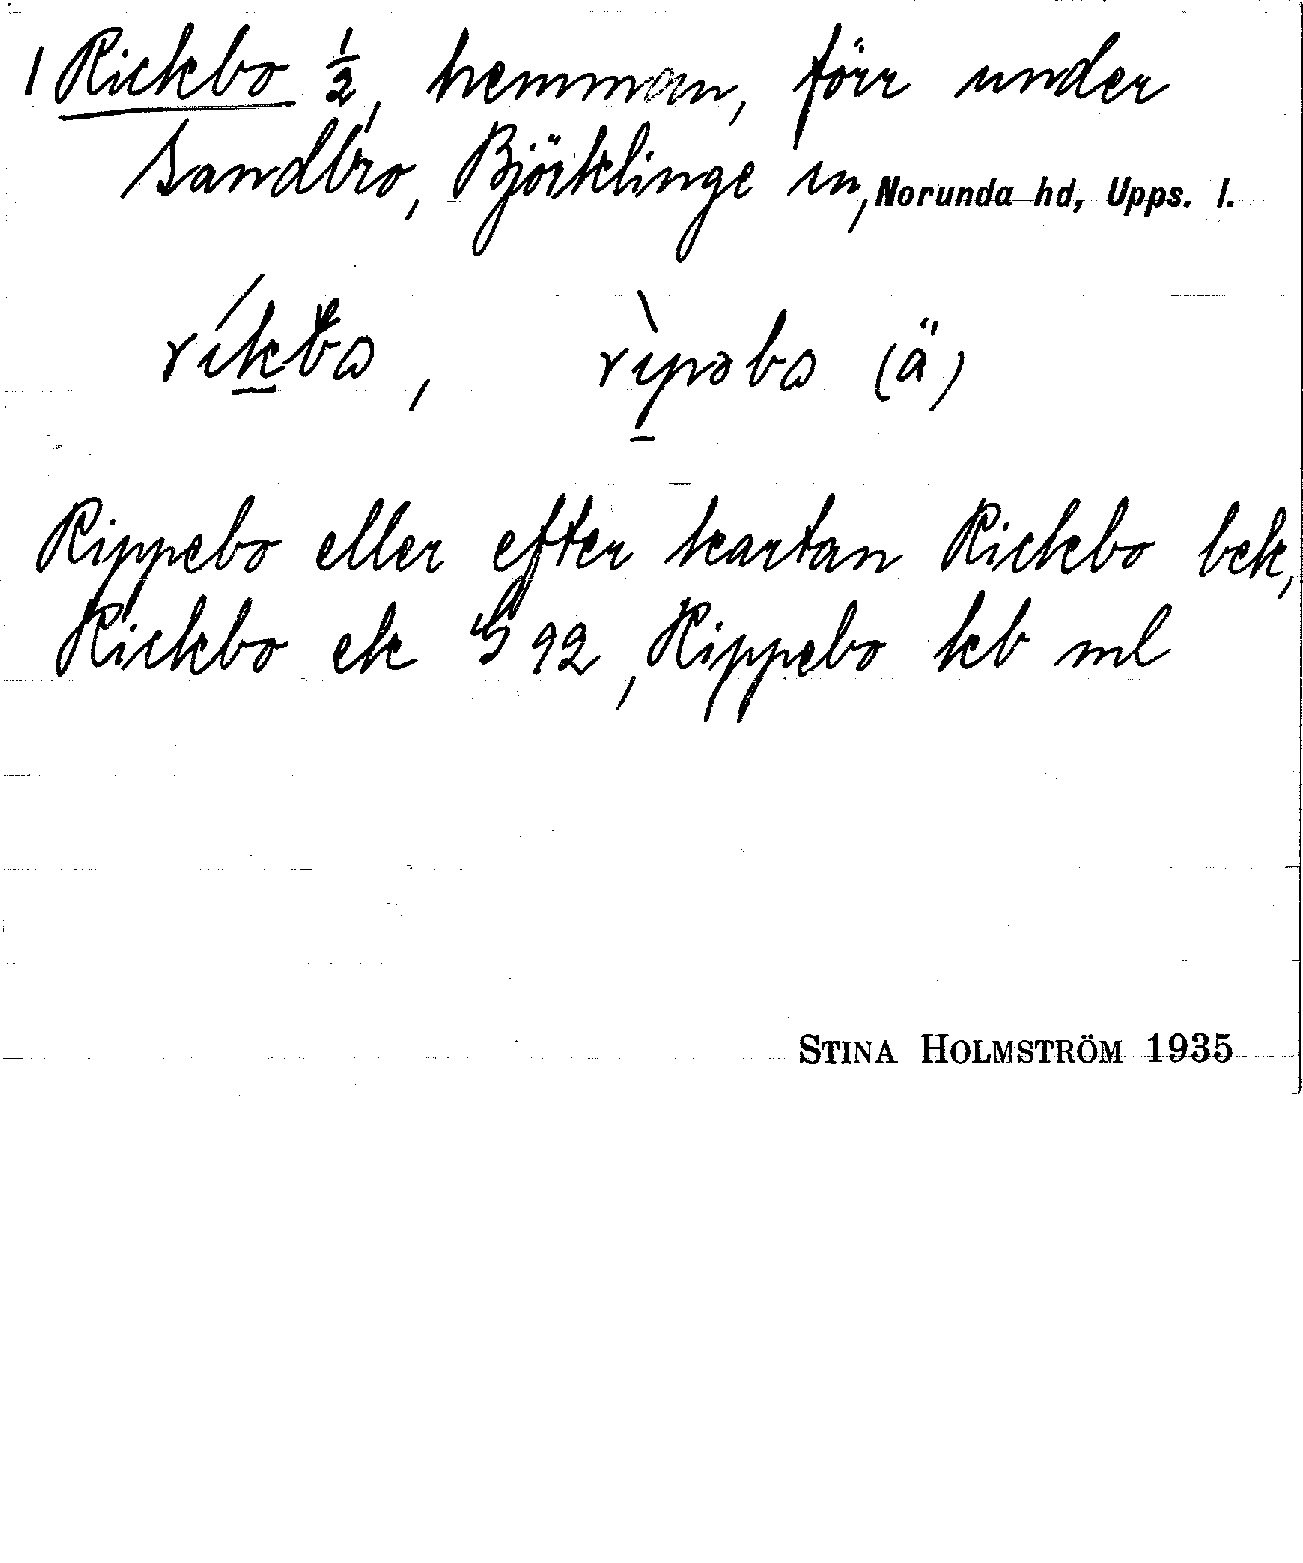 1 Rickbo 1/2, hemman, förr under
Sandbro, Björklinge sn, Norunda hd, Upps. l.
ríkbω, rìpəbω (ä)
Rippebo eller efter kartan Rickbo bek,
Rickbo ek 92, Rippebo kb ml
STINA HOLMSTRÖM 1935